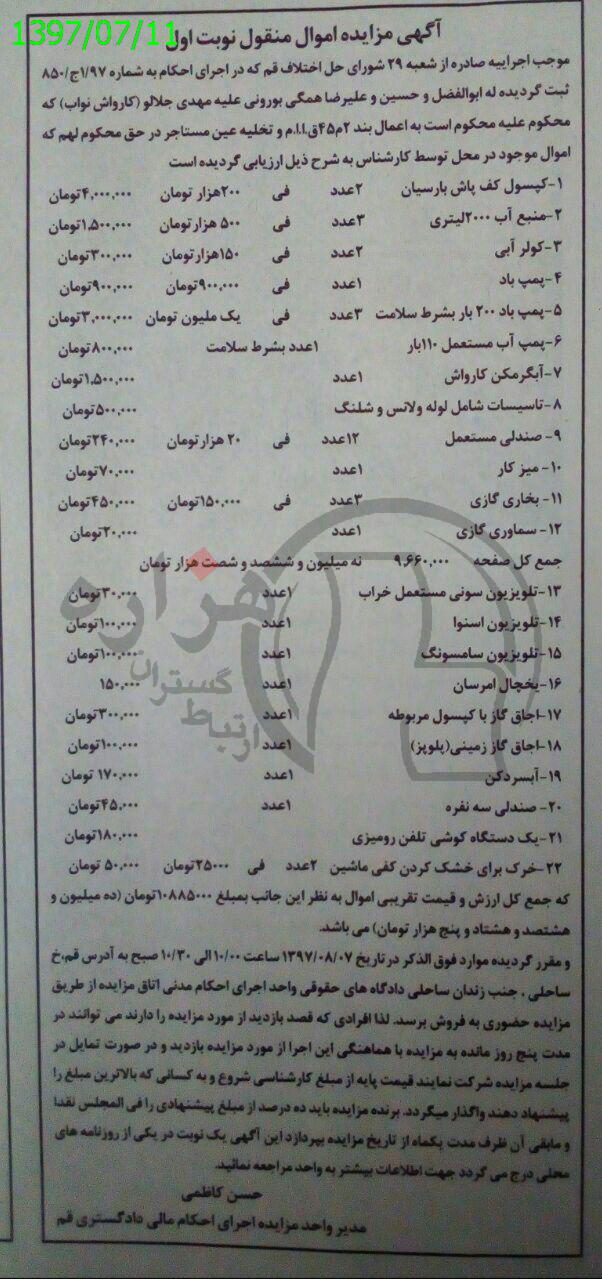 1397/07/11
آگهی مزایده اموال منقول نوبت اول
موجب اجراییه صادره از شعبه ۲۹ شورای حل اختلاف قم که در اجرای احکام به شماره ۱/۹۷ج/۸۵۰
ثبت گردیده له ابوالفضل و حسین و علیرضا همگی بورونی علیه مهدی جلالو (کارواش نواب) که
محکوم علیه محکوم است به اعمال بند ۲م۴۵ق.ا.ا.م و تخلیه عین مستاجر در حق محکوم لهم که
اموال موجود در محل توسط کارشناس به شرح ذیل ارزیابی گردیده است
۱-کپسول کف پاش بارسیان ۲عدد فی ۲۰۰هزار تومان ۴,۰۰۰,۰۰۰تومان
۲-منبع آب ۲۰۰۰لیتری ۳عدد فی ۵۰۰ هزارتومان ۱,۵۰۰,۰۰۰تومان
۳-کولر آبی ۲عدد فی ۱۵۰هزارتومان ۳۰۰,۰۰۰تومان
۴-پمپ باد ۱عدد فی ۹۰۰,۰۰۰تومان ۹۰۰,۰۰۰تومان
۵-پمپ باد ۲۰۰ بار بشرط سلامت ۳عدد فی یک ملیون تومان ۳,۰۰۰,۰۰۰تومان
۶-پمپ آب مستعمل ۱۱۰بار ۱عدد بشرط سلامت ۸۰۰,۰۰۰تومان
۷-آبگرمکن کارواش ۱عدد ۱,۵۰۰,۰۰۰تومان
۸-تاسیسات شامل لوله ولانس و شلنگ ۵۰۰,۰۰۰تومان
۹- صندلی مستعمل ۱۲عدد فی ۲۰ هزارتومان ۲۴۰,۰۰۰تومان
۱۰- میز کار ۱عدد ۷۰,۰۰۰تومان
۱۱- بخاری گازی ۳عدد فی ۱۵۰,۰۰۰تومان ۴۵۰,۰۰۰تومان
۱۲- سماوری گازی ۱عدد ۲۰,۰۰۰تومان
جمع کل صفحه ۹,۶۶۰,۰۰۰ نه میلیون و ششصد و شصت هزار تومان
۱۳-تلویزیون سونی مستعمل خراب ۱عدد ۳۰,۰۰۰تومان
۱۴-تلویزیون اسنوا ۱عدد ۱۰۰,۰۰۰تومان
۱۵-تلویزیون سامسونگ ۱عدد ۱۰۰,۰۰۰تومان
۱۶-یخچال امرسان ۱عدد ۱۵۰,۰۰۰
۱۷-اجاق گاز با کپسول مربوطه ۱عدد ۳۰۰,۰۰۰تومان
۱۸-اجاق گاز زمینی(پلوپز) ۱عدد ۱۰۰,۰۰۰تومان
۱۹-آبسردکن ۱عدد ۱۷۰,۰۰۰ تومان
۲۰- صندلی سه نفره ۱عدد ۴۵,۰۰۰تومان
۲۱-یک دستگاه گوشی تلفن رومیزی ۱۸۰,۰۰۰تومان
۲۲-خرک برای خشک کردن کفی ماشین ۲عدد فی ۲۵۰۰۰تومان ۵۰,۰۰۰ تومان
که جمع کل ارزش و قیمت تقریبی اموال به نظر این جانب بمبلغ ۱۰۸۸۵۰۰۰تومان (ده میلیون و
هشتصد و هشتاد و پنج هزار تومان) می باشد.
و مقرر گردیده موارد فوق الذکر در تاریخ ۱۳۹۷/۰۸/۰۷ ساعت ۱۰/۰۰ الی ۱۰/۳۰ صبح به آدرس قم،خ
ساحلی ، جنب زندان ساحلی دادگاه های حقوقی واحد اجرای احکام مدنی اتاق مزایده از طریق
مزایده حضوری به فروش برسد. لذا افرادی که قصد بازدید از مورد مزایده را دارند می توانند در
مدت پنج روز مانده به مزایده با هماهنگی این اجرا از مورد مزایده بازدید و در صورت تمایل در
جلسه مزایده شرکت نمایند قیمت پایه از مبلغ کارشناسی شروع و به کسانی که بالاترین مبلغ را
پیشنهاد دهند واگذار میگردد. برنده مزایده باید ده درصد از مبلغ پیشنهادی را فی المجلس نقدا
و مابقی آن ظرف مدت یکماه از تاریخ مزایده بپردازد این آگهی یک نوبت در یکی از روزنامه های
محلی درج می گردد جهت اطلاعات بیشتر به واحد مراجعه نمائید.
حسن کاظمی
مدیر واحد مزایده اجرای احکام مالی دادگستری قم
هزاره
گستران
ارتباط